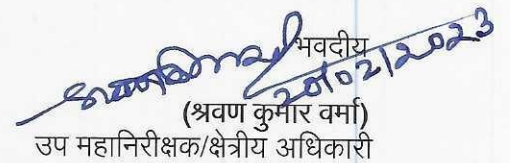 भवदीय
20/02/2023
(श्रवण कुमार वर्मा)
उप महानिरीक्षक/क्षेत्रीय अधिकारी